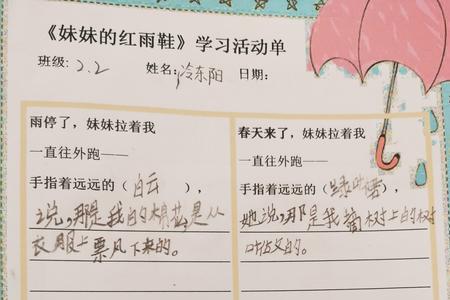 《妹妹的红雨鞋》学习活动单
班级：2.2 姓名：冷东阳 日期：
雨停了，妹妹拉着我
一直往外跑——
手指着远远的（白云），
说，那是我的棉花是从
衣服上票风下来的。
春天来了，妹妹拉着我
一直往外跑——
手指着远远的（绿），
她说，那是我摘树上的树
叶做的。